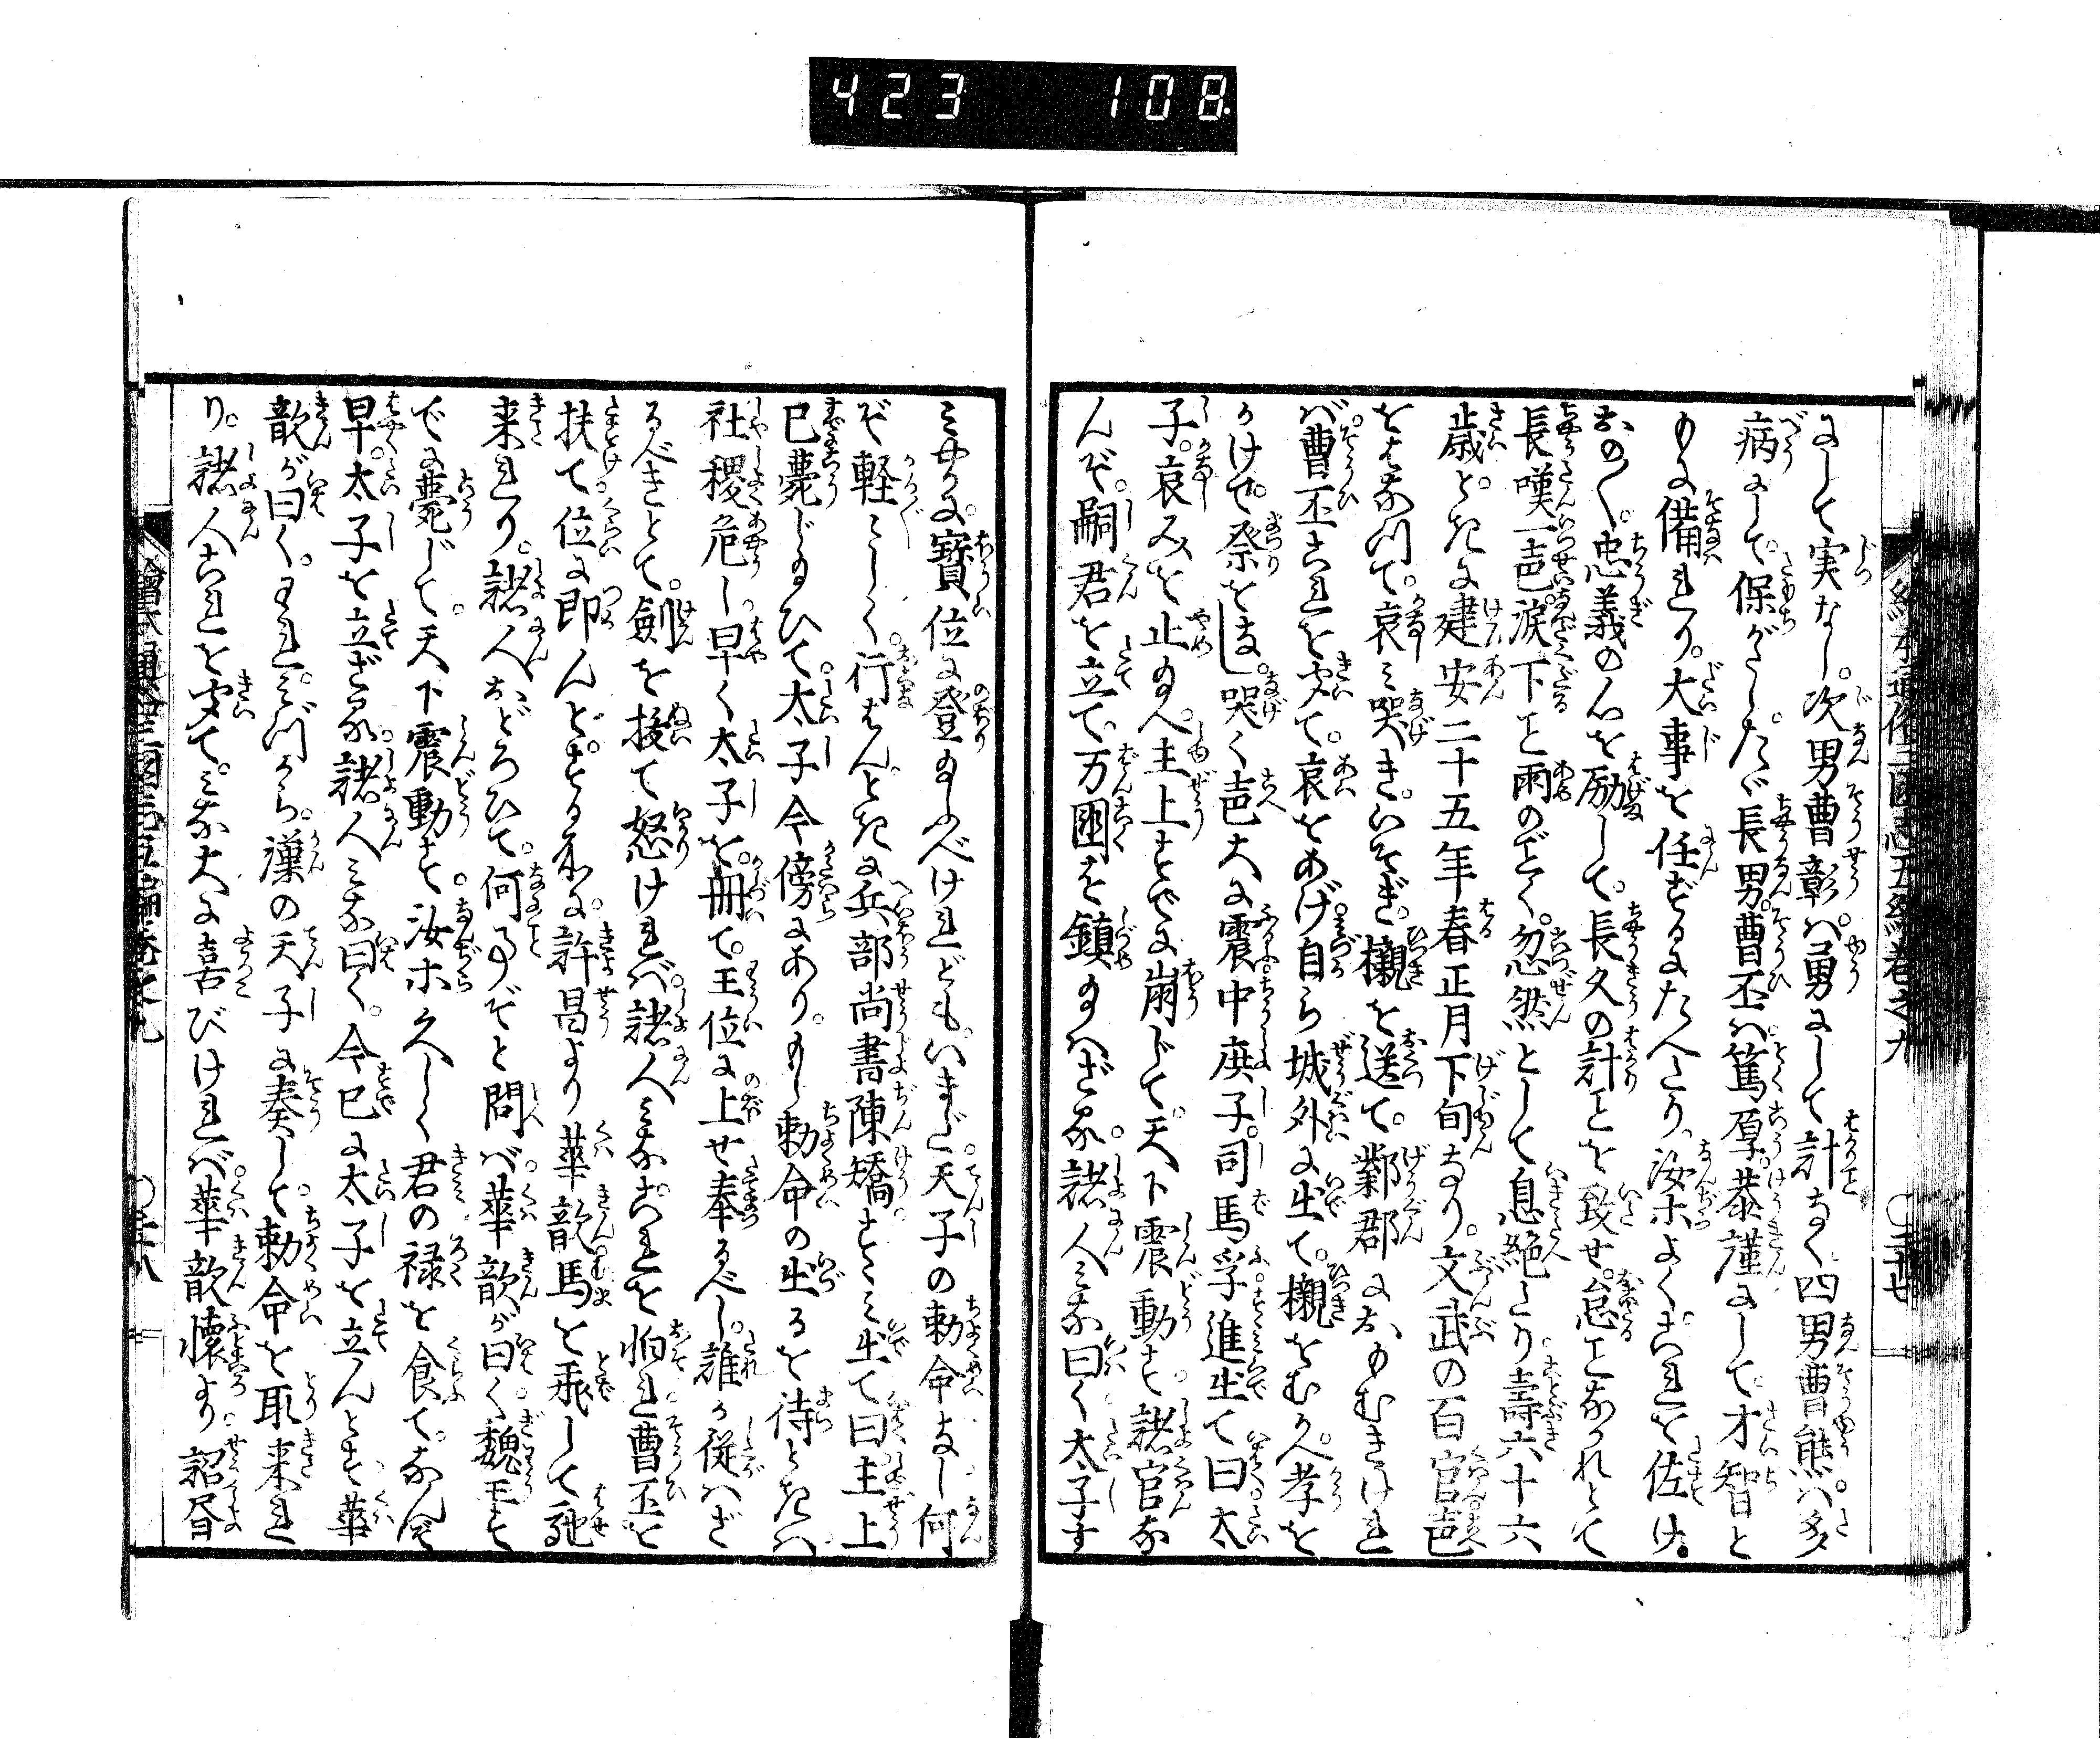 423 108
絵本通俗三国志五編巻之九 〇二十七
にして実なし。次男曹彰ハ。勇にして計なく四男曹熊ハ。多
病にして。保がたし。たゞ長男。曹丕ハ。篤厚。恭謹にして。才智と
もに備れり。大事を任ずるにたへたり。汝ホよくこれを佐け。
おの〳〵。忠義の心を励して。長久の計ことを致せ。怠ことなかれとて
長嘆一声。涙下こと雨のごとく。忽然として息絶たり。壽六十六
歳とき に建安二十五年春正月下旬なり。文武の百官声
をはなつて。哀ミ哭き。いそぎ。櫬を送て。鄴郡におもむきけれ
ば。曹丕これを聞て。哀をあげ。自ら城外に出て。櫬をむかへ。孝を
かけて。祭をまし。哭く声大に震。中庶子。司馬孚。進出て曰太
子。哀みを止め給へ。主上すでに崩じて。天下震動す。諸官な
んぞ。嗣君を立て。万国を鎮め給ハざる。諸人ミな曰く太子す
ミやかに。寳位に登り給ふべけれども。いまだ。天子の勅命なし何
ぞ軽〻しく。行はんとき に兵部尚書陳矯。すゝミ出て曰主上
已薨じ給ひて。太子今傍にあり。もし勅命の出るを待ときハ
社稷危し。早く太子を。冊て。王位に上せ奉るべし。誰か従ハざ
るべきとて。劍を抜て怒ければ。諸人ミなこれを怕れ曹丕を
扶て位に即んとする処に。許昌より華歆馬を飛して馳
来れり。諸人おどろひて。何事ぞと問バ。華歆が曰く。魏王す
でに薨じて。天下震動す。汝ホ久しく君の禄を食て。なんぞ
早。太子を立ざる。諸人ミな曰く。今已に太子を立んとす。華
歆が曰く。われ。ミづから。漢の天子に奏して。勅命を取来れ
り。諸人これを聞て。ミな大に喜びければ。華歆懐より。詔書
繪本通俗三國志五編巻之九 〇二十八